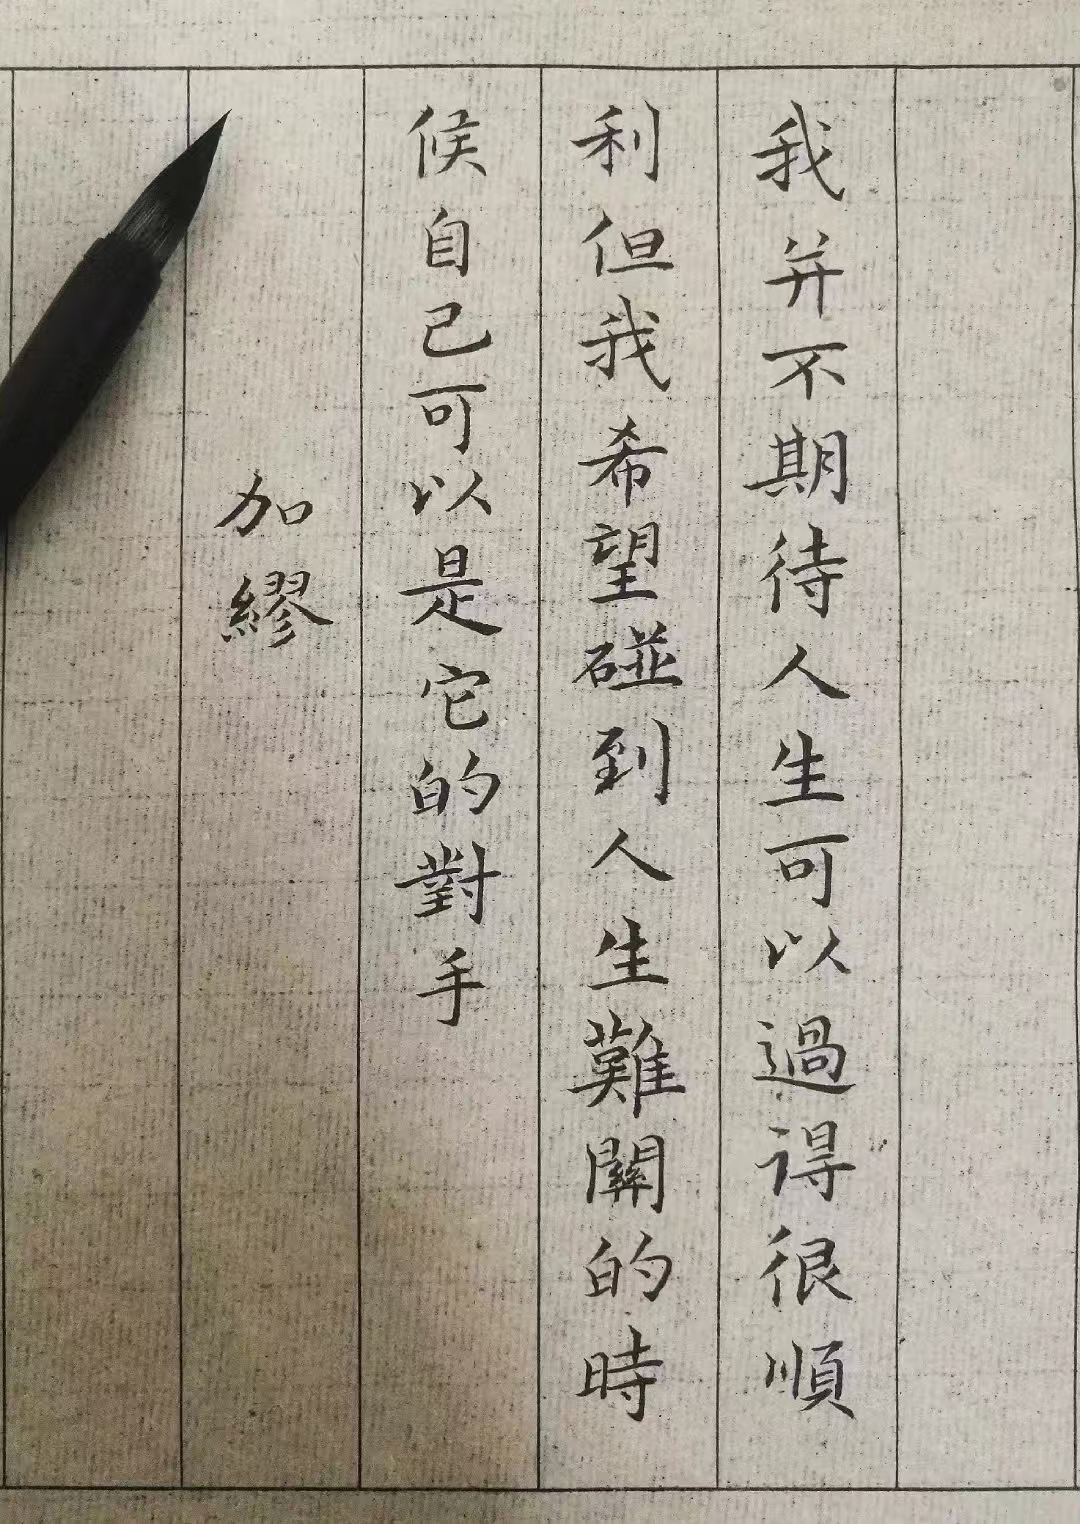 我并不期待人生可以過得很順
利但我希望碰到人生難關的時
候自己可以是它的對手
加繆